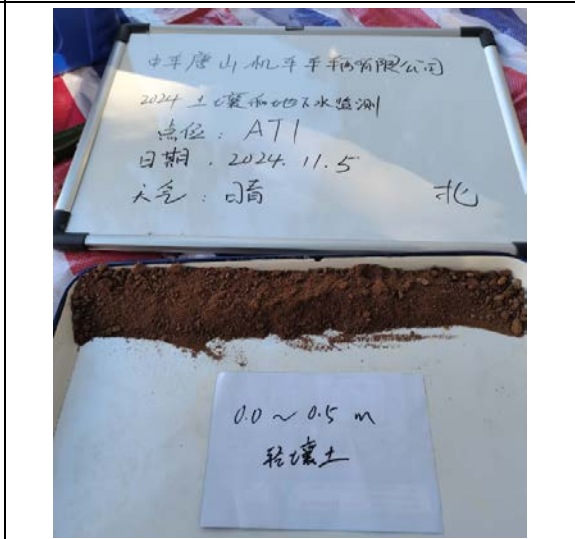 中车唐山机车车辆有限公司
2024 土壤和地下水监测
点位：AT1
日期．2024.11.5
天气：晴
北
0.0～0.5 m
轻壤土